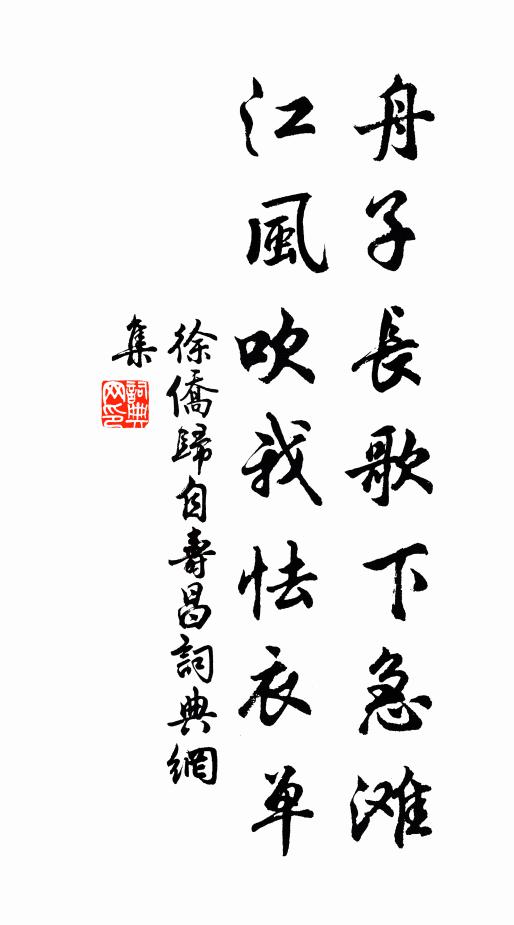 舟子長歌下急滩
江風吹我怯衣单
徐僑歸自壽昌詞典網
集
詞典網印